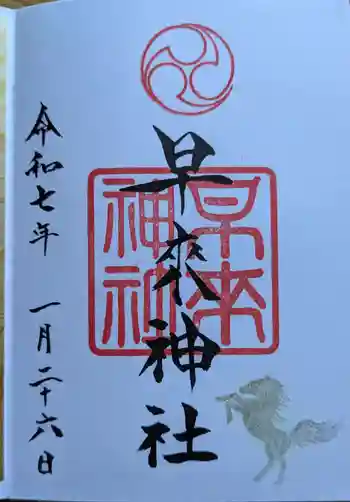 早来神社
早来
神社
令和七年 一月二十六日